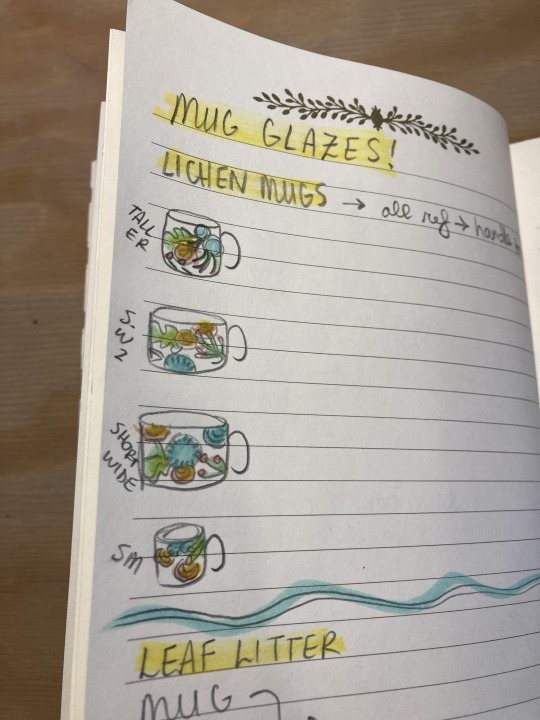 MUG GLAZES!
LICHEN MUGS → all ref →
TALL
ER
S.
W
2
SHORT
WIDE
SM
LEAF LITTER
MUG